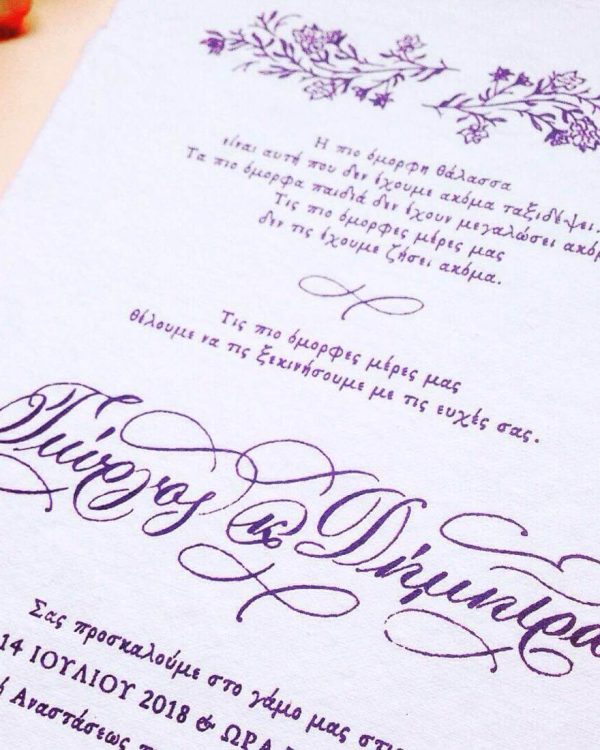 Η πιο όμορφη θάλασσα
είναι αυτή που δεν έχουμε ακόμα ταξιδέψει.
Τα πιο όμορφα παιδιά δεν έχουν μεγαλώσει
Τις πιο όμορφες μέρες μας
δεν τις έχουμε ζήσει ακόμα.
Τις πιο όμορφες μέρες μας
θέλουμε να τις ξεκινήσουμε με τις ευχές σας.
Γιώργος κ Δήμητρα
Σας προσκαλούμε στο γάμο μας
14 ΙΟΥΛΙΟΥ 2018 & ΩΡΑ
Αναστάσεως